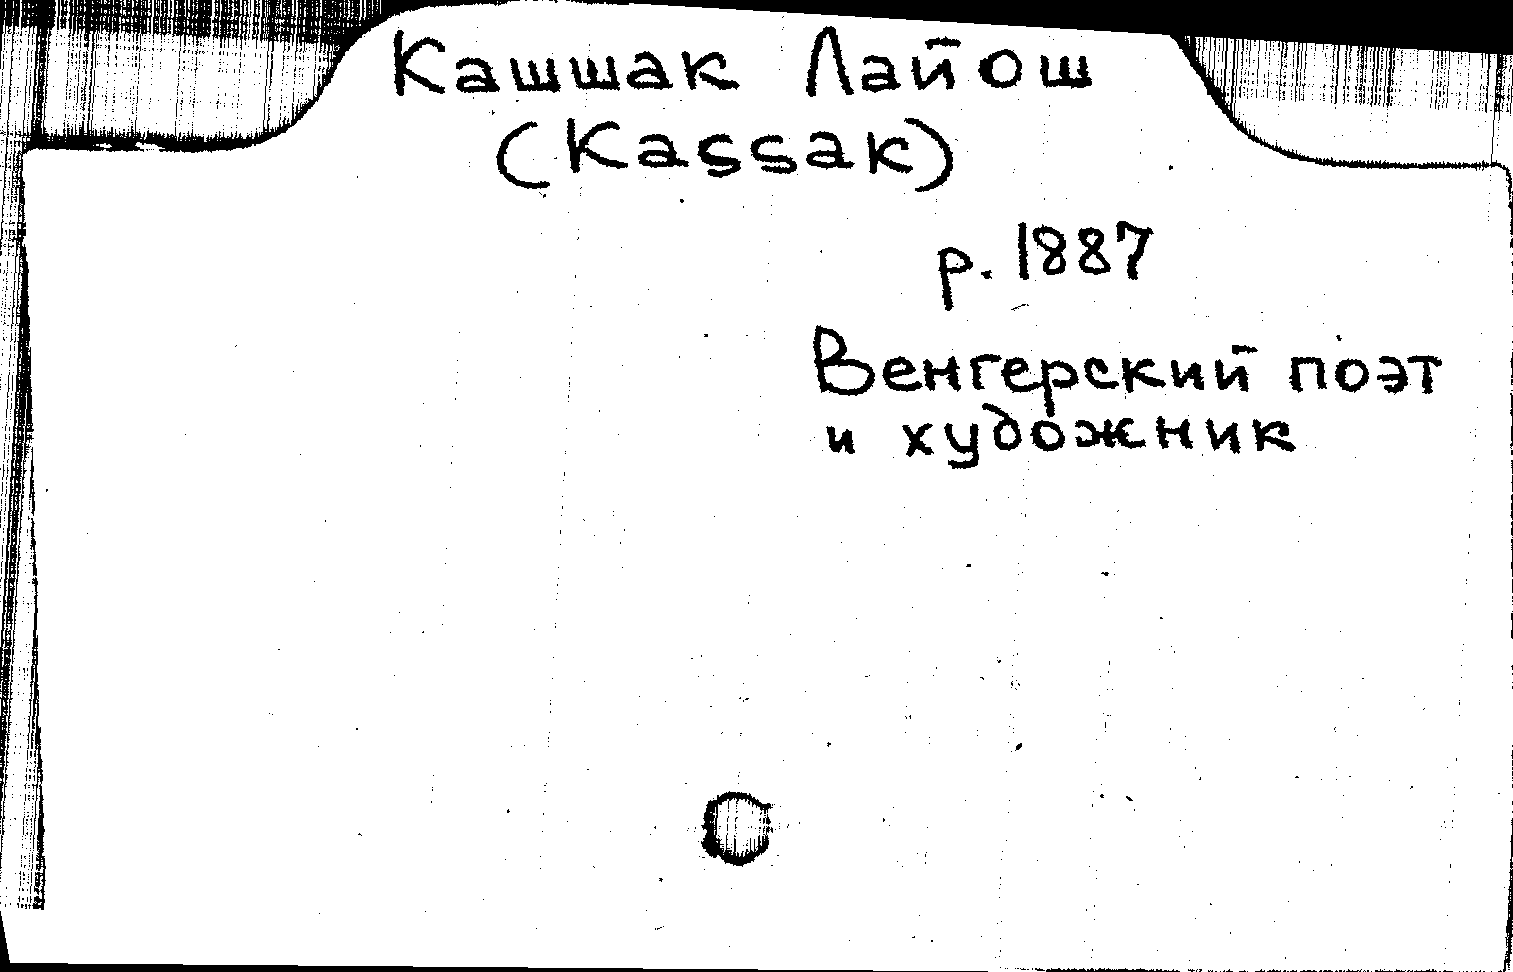 Кашшак Лайош
(Kassak)
р. 1887
Венгерский поэт
и художник